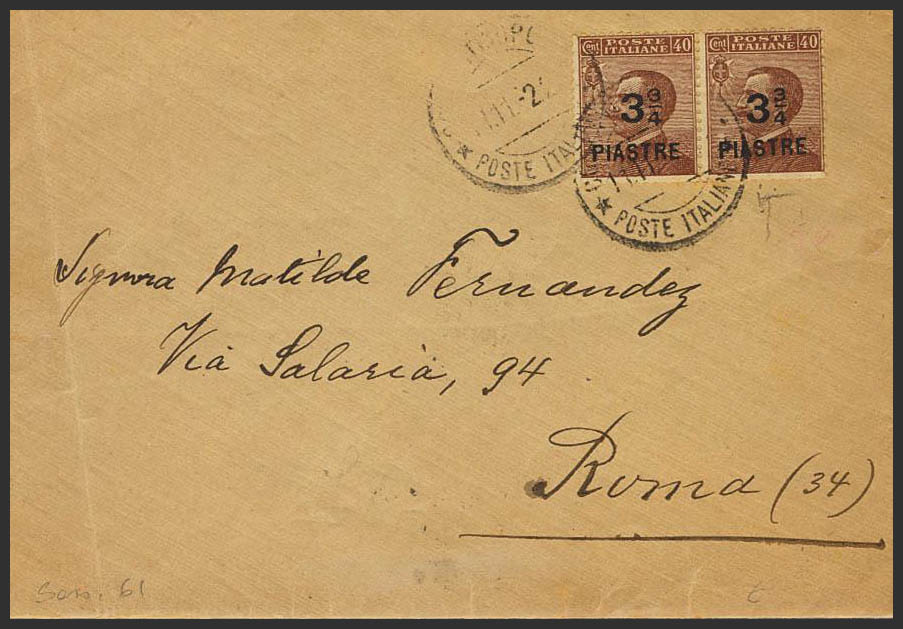 Cent POSTE ITALIANE 40
3 3/4
PIASTRE
Cent POSTE ITALIANE 40
3 3/4
PIASTRE
POSTE ITALIANE
POSTE ITALIANE
Signora Matilde Fernandez
Via Salaria, 94
Roma (34)
Sass. 61